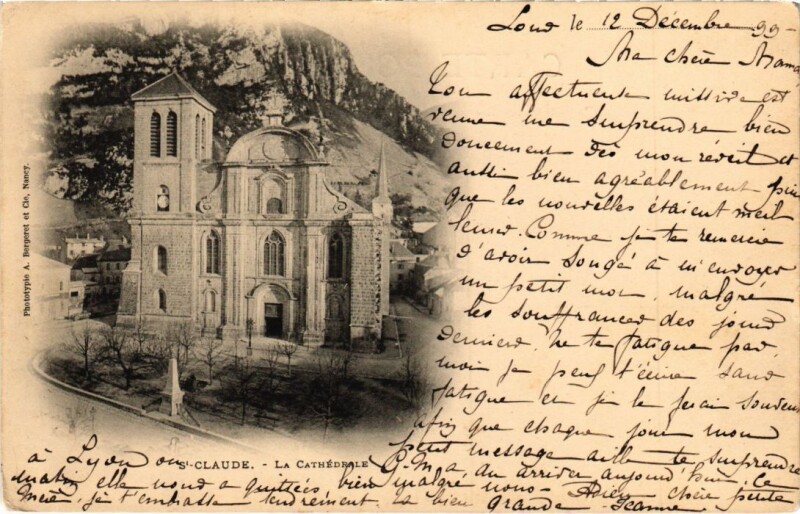 Lons le 12 Décembre 99
Ma chère Mama
Ton affectueuse missive est
venue me surprendre bien
doucement dès mon réveil et
aussi bien agréablement puis
que les nouvelles étaient meil
leures. Comme je te remercie
d'avoir songé à m'envoyer
un petit mot, malgré
les souffrances des jours
derniers. Ne te fatigue pas,
moi je peux t'écrire sans
fatigue et je le ferai souvent
afin que chaque jour mon
petit message aille te surprendre
à Lyon où G-Ma, au arriver aujourd'hui. Ce
matin elle nous a quittées bien malgré nous - Adieu chère petite
Mère, je t'embrasse tendrement. ta bien grande Jeanne
St-CLAUDE. - LA CATHÉDRALE
Phototypie A. Bergeret et Cie, Nancy.